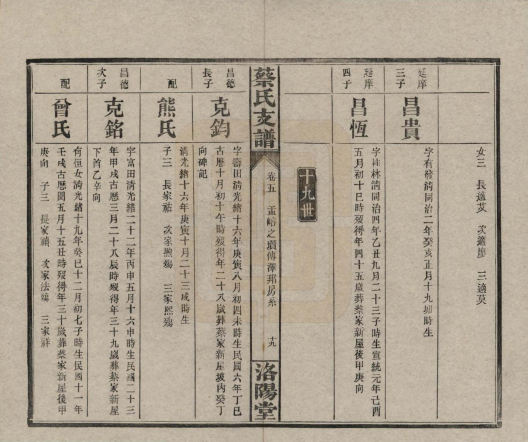 女三 長適艾 次適廖 三適莫
延庠
三子
昌貴
字有發清同治二年癸亥正月十九卯時生
延庠
四子
昌恆
字桂林清同治四年乙丑九月二十三子時生宣統元年己酉
五月初十巳時歿得年四十五歲葬蔡家新屋後甲庚向
十九世
蔡氏支譜
卷五 孟峪之續傳澤邦房系
十九
洛陽堂
昌德
長子
克鈞
字壽田清光緒十六年庚寅八月初四未時生民國六年丁巳
古曆十月初十午時歿得年二十八歲葬蔡家新屋坡內癸丁
向碑記
配
熊氏
清光緒十六年庚寅十月二十三戌時生
子三 長家祜 次家熙 三家熙
昌德
次子
克銘
字富田清光緒二十二年丙申五月十六申時生民國二十三
年甲戌古曆三月二十八辰時歿得年三十九歲葬蔡家新屋
下首乙辛向
配
曾氏
有恆女清光緒十九年癸巳十二月初七子時生民國四十一年
壬辰古曆閏五月十五丑時歿得年三十歲葬蔡家新屋後甲
庚向 子三 長家禎 次家法 三家祥